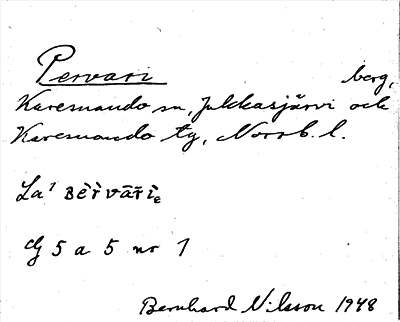 Pervari berg,
Karesuando sn, Jukkasjärvi och
Karesuando tg, Norrb. l.
La' Bèr̀vāri
G 5 a 5 nr 1
Bernhard Nilsson 1948